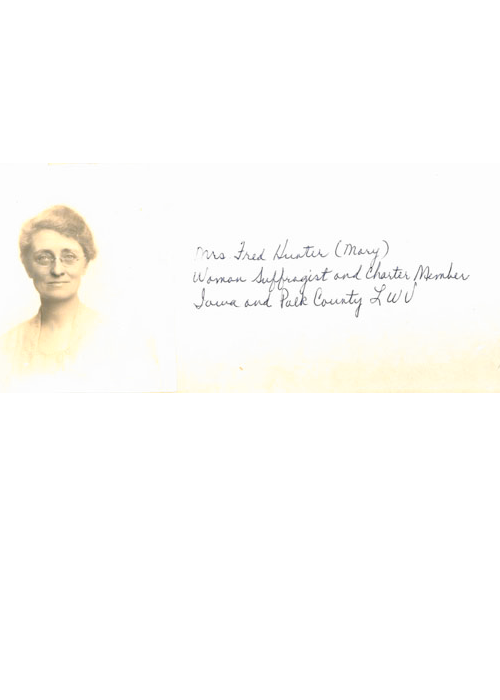 Mrs Fred Hunter (Mary)
Woman Suffragist and Charter Member
Iowa and Polk County L W V